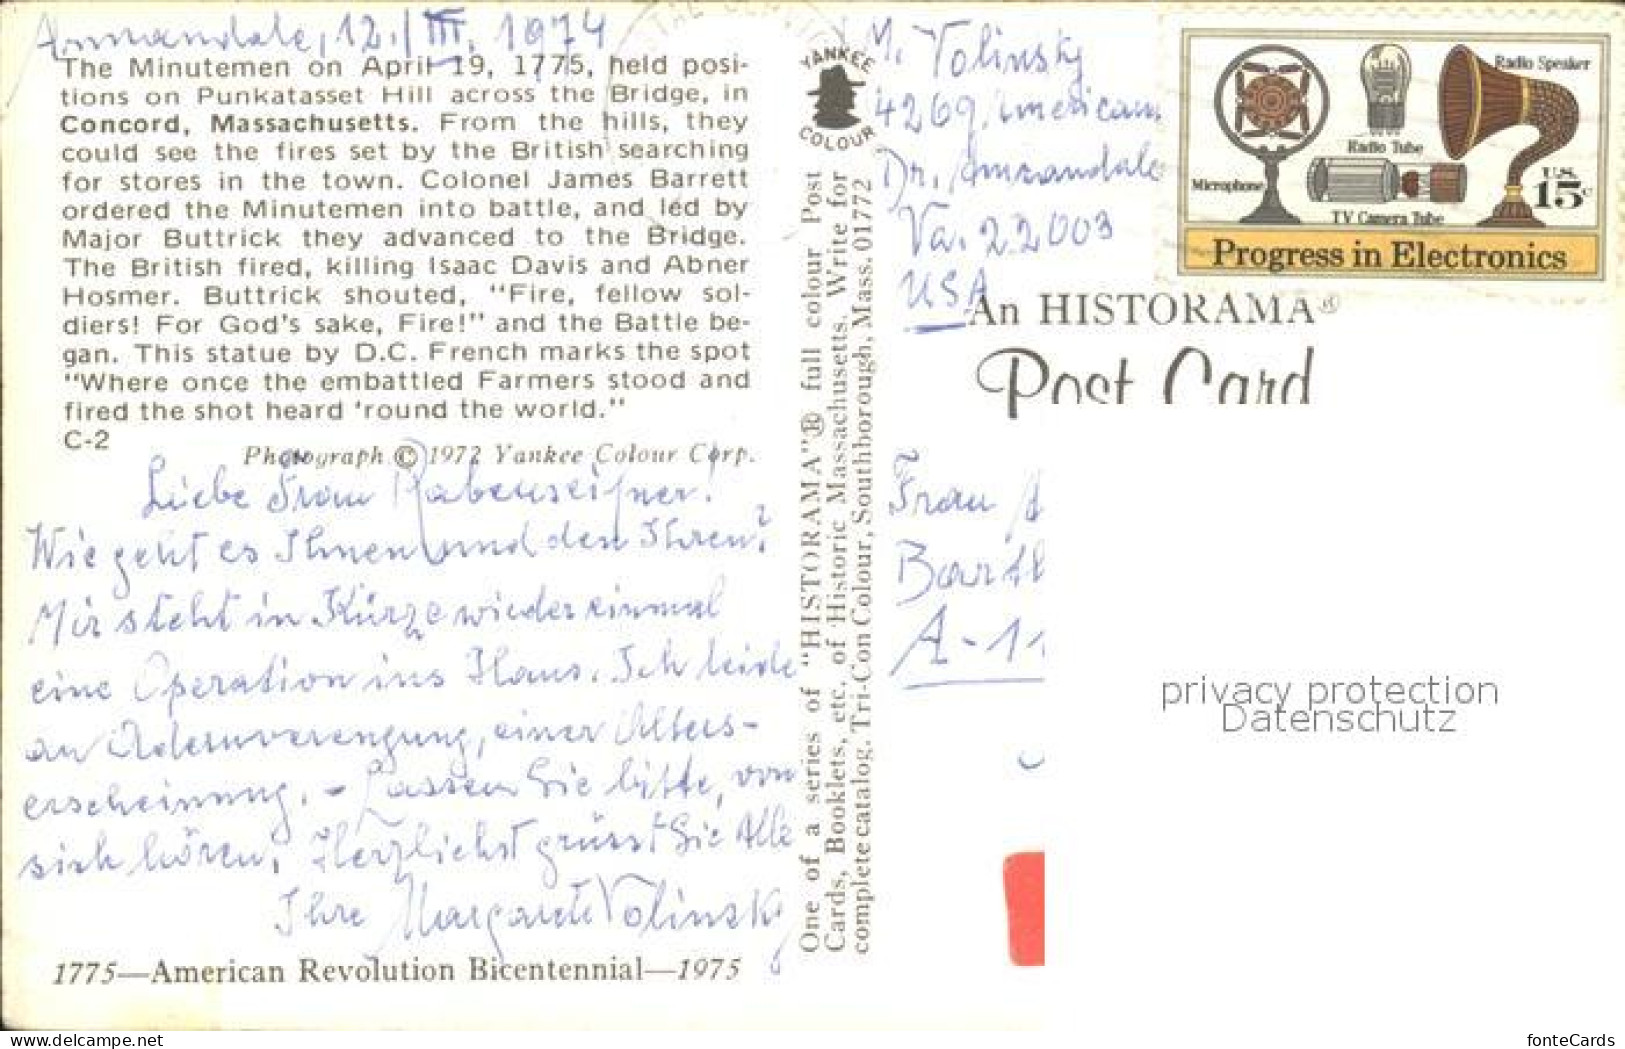 Annandale, 12./III. 1974
The Minutemen on April 19, 1775, held posi-
tions on Punkatasset Hill across the Bridge, in
Concord, Massachusetts. From the hills, they
could see the fires set by the British searching
for stores in the town. Colonel James Barrett
ordered the Minutemen into battle, and led by
Major Buttrick they advanced to the Bridge.
The British fired, killing Isaac Davis and Abner
Hosmer. Buttrick shouted, "Fire, fellow sol-
diers! For God's sake, Fire!" and the Battle be-
gan. This statue by D.C. French marks the spot
"Where once the embattled Farmers stood and
fired the shot heard 'round the world."
C-2
Photograph © 1972 Yankee Colour Corp.
Liebe Frau Rabenseifner!
Wie geht es Ihnen und den Ihren?
Mir steht in Kürze wieder einmal
eine Operation ins Haus. Ich leide
an Adernverengung, einer Alters-
erscheinung. - Lassen Sie bitte, von
sich hören! Herzlichst grüsst Sie Alle
Ihre Margarete Volinsky
1775—American Revolution Bicentennial—1975
YANKEE
COLOUR
One of a series of "HISTORAMA"® full colour Post
Cards, Booklets, etc. of Historic Massachusetts. Write for
complete catalog. Tri-Con Colour, Southborough, Mass. 01772
M. Volinsky
4269 American
Dr. Annandale
Va. 22003
USA
Radio Speaker
Radio Tube
Microphone
TV Camera Tube
U.S.
15c
Progress in Electronics
An HISTORAMA®
Post Card
Frau
A-11
privacy protection
Datenschutz
www.delcampe.net
fonteCards